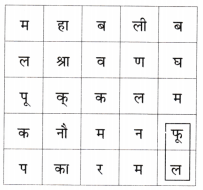 म हा ब ली ब
ल श्रा व ण घ
पू क् क ल म
क नौ म न फू
प का र म ल